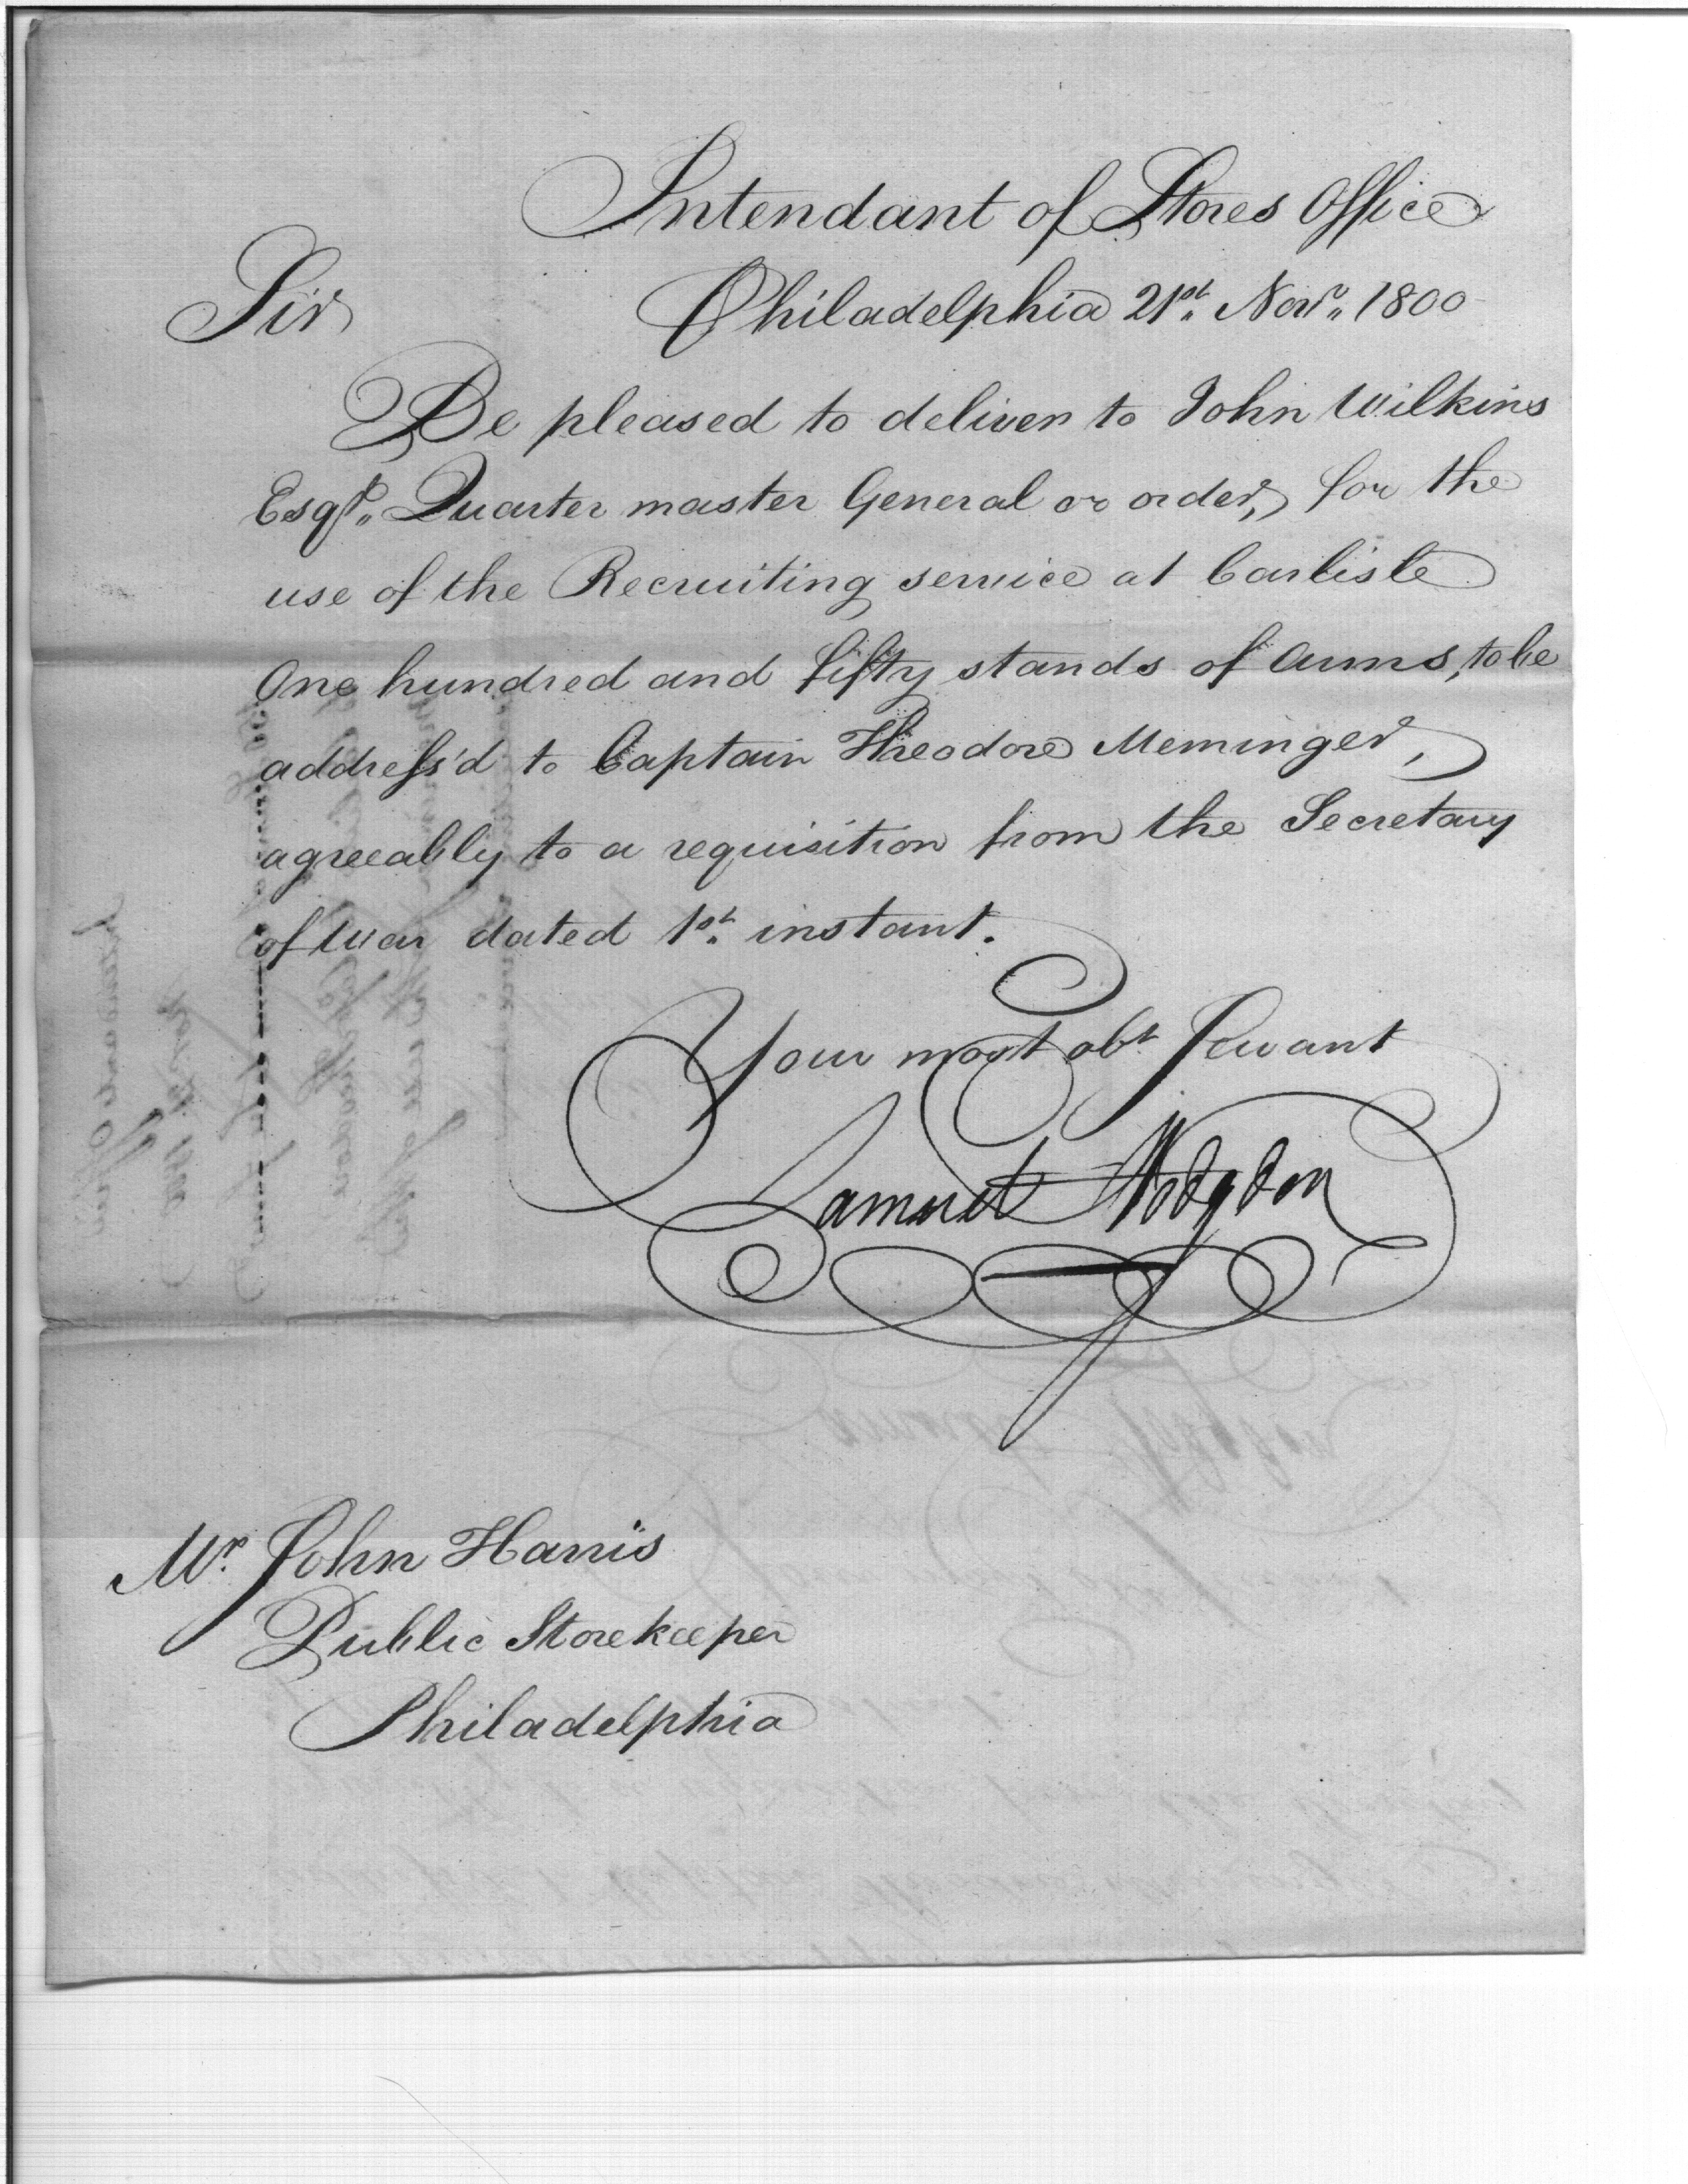 Intendant of Stores Office
Philadelphia 21st. Novr. 1800
Sir
Be pleased to deliver to John Wilkins
Esqr. Quarter master General or order, for the
use of the Recruiting service at Carlisle
One hundred and fifty stands of Arms, to be
address'd to Captain Theodore Meminger,
agreeably to a requisition from the Secretary
of War dated 1st. instant.
Your most obt Servant
Samuel Hodgdon
Mr. John Harris
Public Storekeeper
Philadelphia